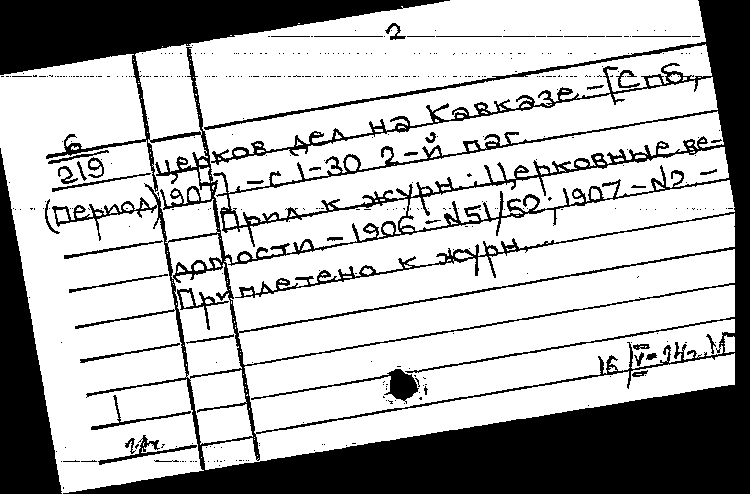 2
6
219
(период)
церков. дел на Кавказе. – [Спб.,
1907]. – с 1–30 2-й паг.
Прил. к журн.: Церковные ве-
домости. – 1906. – N51/52; 1907. – N2. –
Приплетено к журн....
16/V–94г.
1